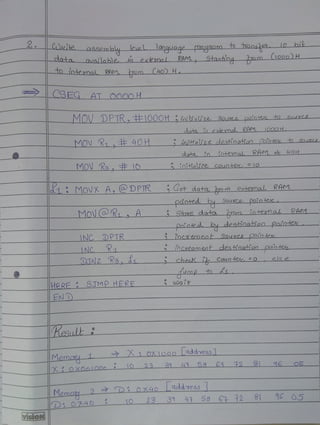 2. Write assembly level language program to transfer 10 bit
data available in external RAM, starting from (1000)H
to internal RAM from (40)H.
⇒ CSEG AT 0000H
MOV DPTR, #1000H ; initialize source pointer to source
data in external RAM 1000H.
MOV R1, # 40H ; initialize destination pointer to
data in internal RAM at 40H
MOV R3, # 10 ; initialize counter =10
L1 : MOVX A, @DPTR ; Get data from external RAM
pointed by source pointer.
MOV@R1, A ; Store data from internal RAM
pointed by destination pointer.
INC DPTR ; increment source pointer
INC R1 ; increment destination pointer
DJNZ R3, L1 ; check if counter =0, else
jump to L1.
HERE : SJMP HERE ; wait
END
Result :
Memory 1 → X : 0X1000 [address]
X : 0X001000 : 10 23 39 47 50 67 72 81 96 05
Memory 2 → D : 0X40 [address]
D : 0X40 : 10 23 39 47 50 67 72 81 96 05
vision